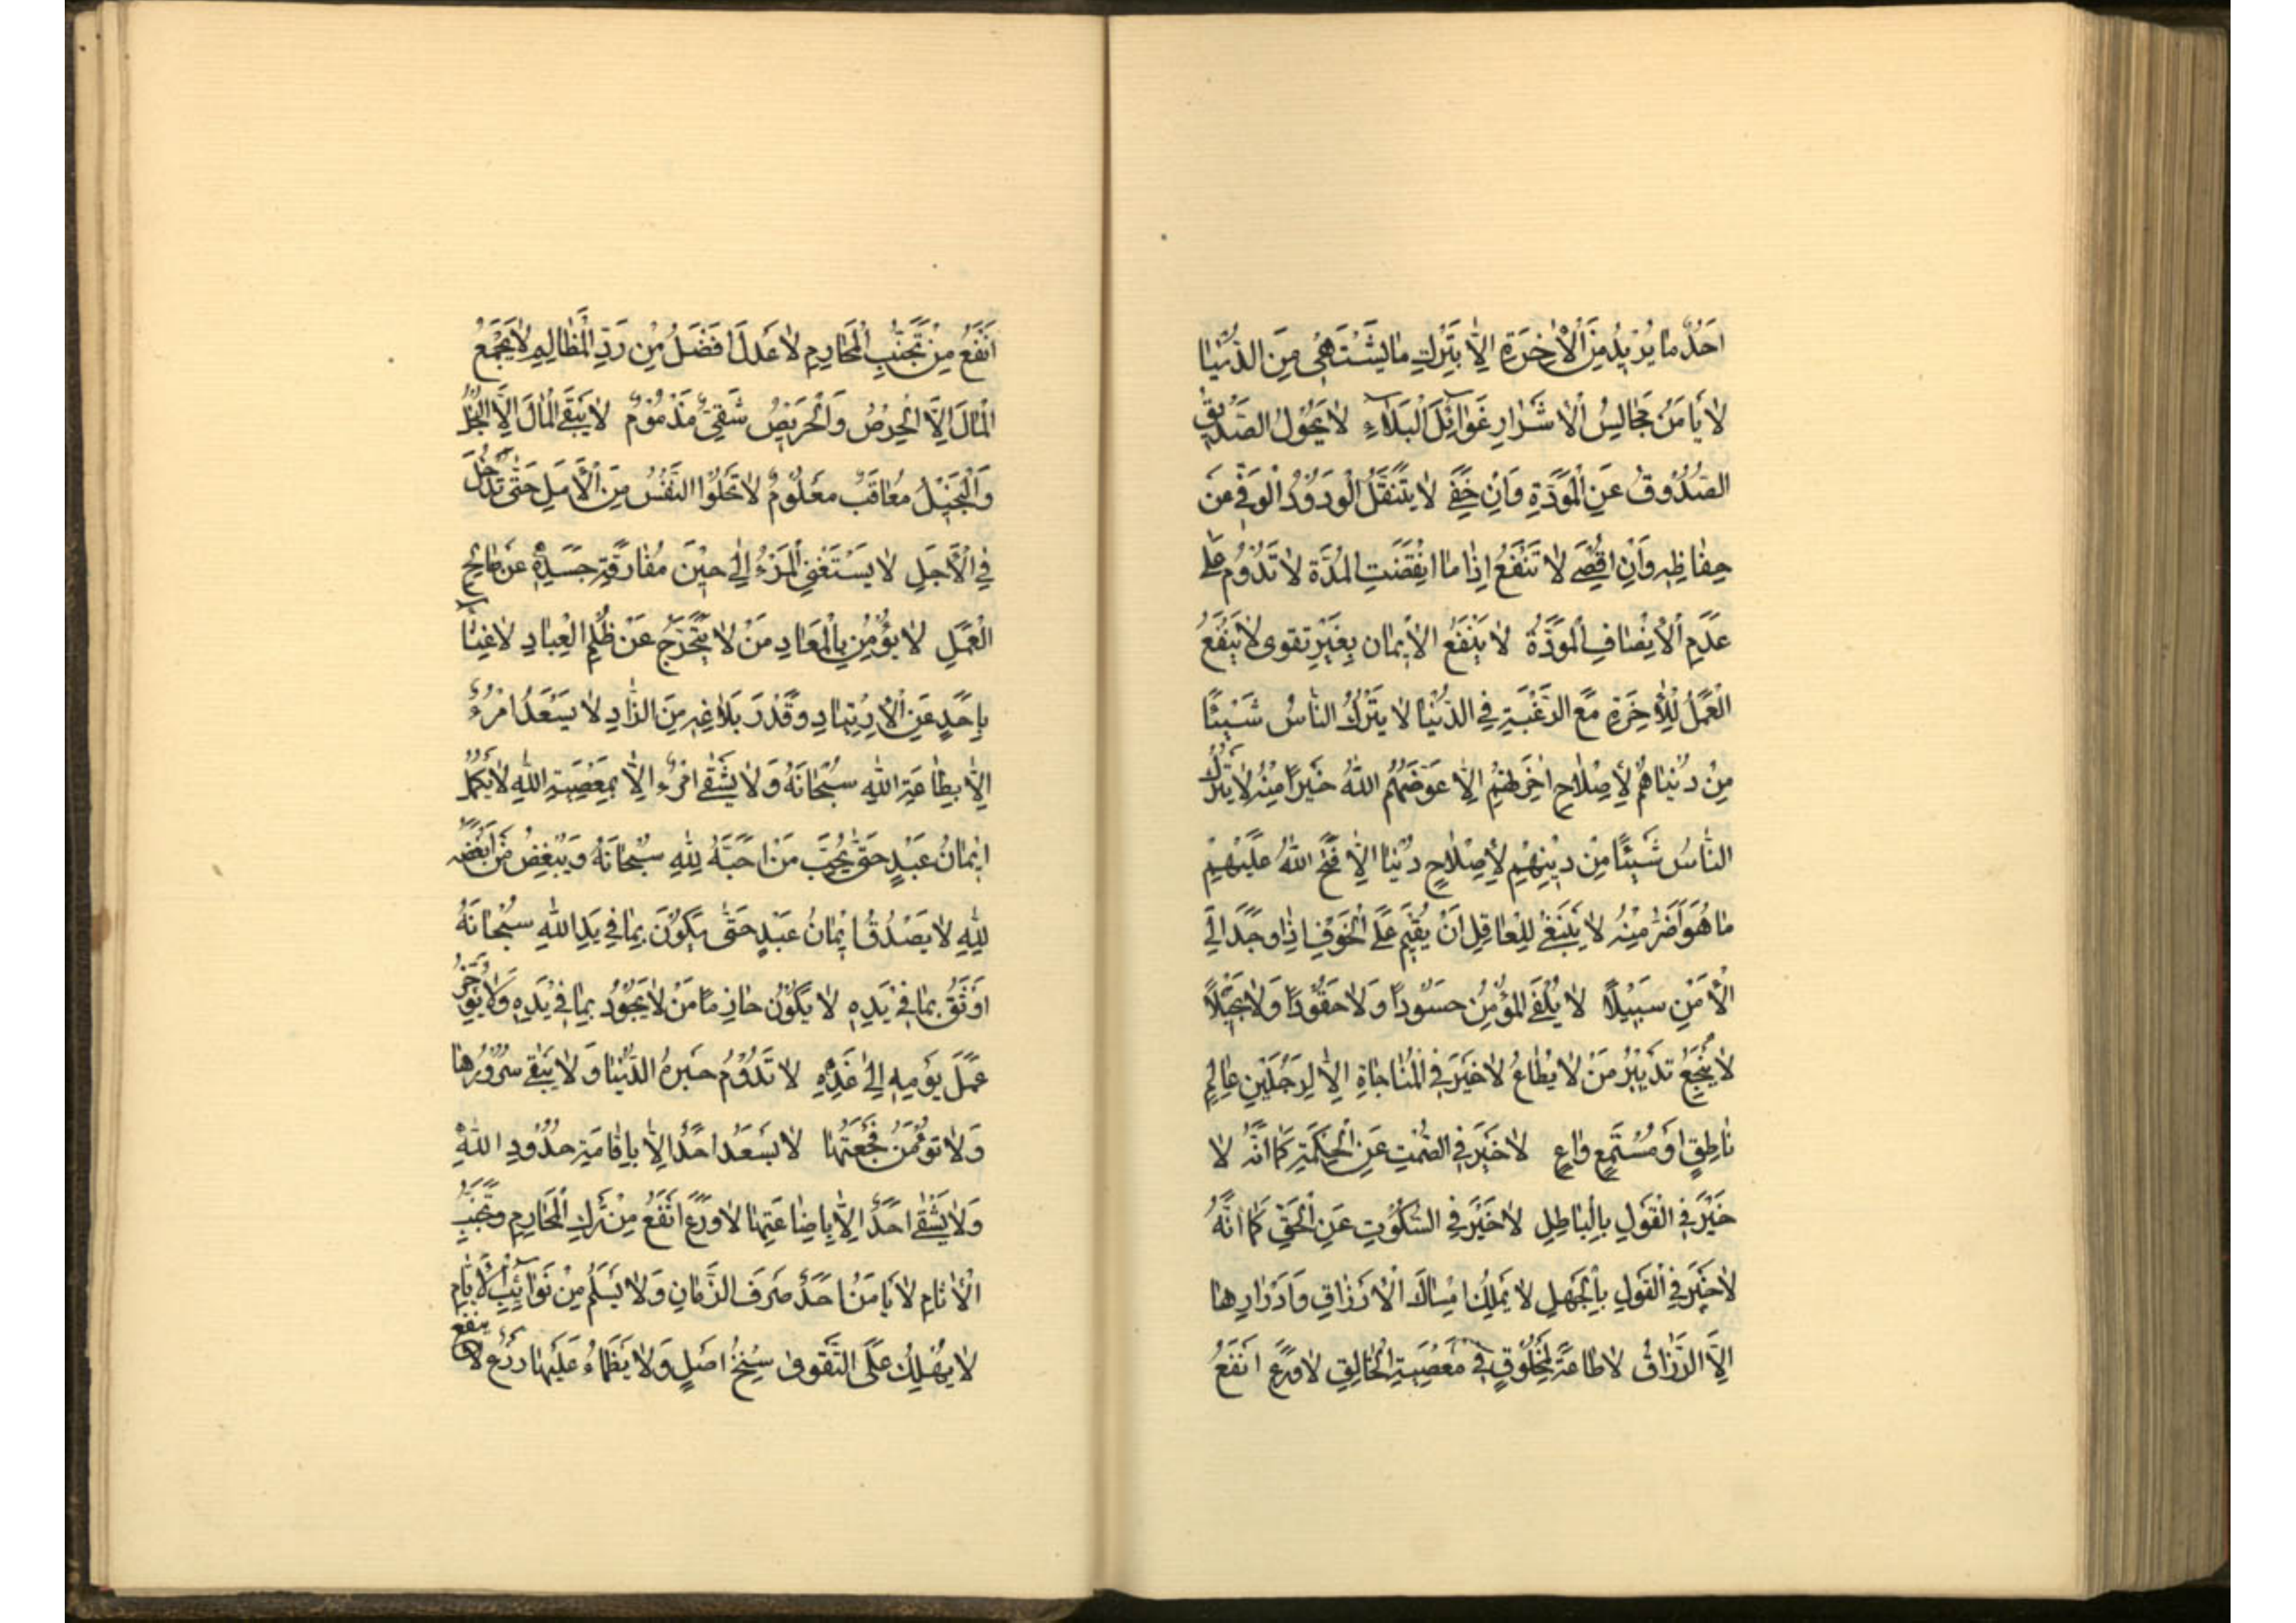 اَحَدٌ ما يُرْيدُ مِنَ الْاٰخِرَةِ اِلّٰا بِتَرْكِ ما يَشْتَهى مِنَ الدُّنْيٰا
لا يَأمَنُ مَجالِسُ الْاَشْرٰارِ غَوٰائِلَ الْبَلاٰءِ لا يَحُولُ الصَّديقُ
الصَّدُوقُ عَنِ الْمَوَدَّةِ وَاِنْ جُفِىَ لا يَتَنَقَّلُ الْوَدُودُ الْوَفِىُّ عَنْ
حِفاظِهِ وَاِنْ اُقْصِىَ لا تَنْفَعُ اِذٰا ما انْقَضَتِ الْمُدَّة لا تَدُومُ عَلىٰ
عَدَمِ الْاِنْصافِ الْمَوَدَّةُ لا يَنْفَعُ الْاِيمان بِغَيْرِ تقوى لا يَنْفَعُ
الْعَمَلُ لِلْاٰخِرَةِ مَعَ الرَّغْبَةِ فِي الدُّنْيٰا لا يَتْرُكُ النّٰاسُ شَيْئًا
مِنْ دُنْيٰاهُمْ لِاِصْلاٰحِ اٰخِرَتِهِمْ اِلّٰا عَوَّضَهُمُ اللّٰهُ خَيْراً مِنْهُ لا يَتْرُكُ
النّٰاسُ شَيْئًا مِنْ دينِهِمْ لِاِصْلاٰحِ دُنْيٰا اِلّٰا فَتَحَ اللّٰهُ عَلَيْهِمْ
ما هُوَ اَضَرُّ مِنْهُ لا يَنْبَغى لِلْعاقِلِ اَنْ يُقيمَ عَلَى الْخَوْفِ اِذٰا وجَدَ اِلَى
الْاَمْنِ سَبيْلًا لا يُلْفَى الْمُؤْمِنُ حَسُوداً وَلا حَقُوداً وَلا بَخيْلًا
لا يَنْجَعُ تَدْبيرُ مَنْ لا يُطٰاعُ لا خَيْرَ فِي الْمُنٰاجاةِ اِلّٰا لِرَجُلَيْنِ عالِمٍ
نٰاطِقٍ اَوْ مُسْتَمِعٍ وٰاعٍ لا خَيْرَ فِي الصَّمْتِ عَنِ الْحِكْمَةِ كَما اَنَّهُ لا
خَيْرَ فِي الْقَوْلِ بِالْبٰاطِلِ لا خَيْرَ فِي السُّكُوتِ عَنِ الْحَقِّ كَما اَنَّهُ
لا خَيْرَ فِي الْقَوْلِ بِالْجَهْلِ لا يَمْلِكُ اِمْساكَ الْاَرْزٰاقِ وَاِدْرٰارِها
اِلَّا الرَّزّٰاقُ لا طاعَةَ لِمَخْلُوقٍ فِي مَعْصِيَةِ الْخٰالِقِ لا وَرَعَ اَنْفَعُ
اَنْفَعُ مِنْ تَجَنُّبِ الْمَحٰارِمِ لا عَدلَ اَفْضَلُ مِنْ رَدِّ الْمَظٰالِمِ لا يَجْمَعُ
الْمٰالَ اِلَّا الْحِرْصُ وَالْحَريصُ شَقِيٌّ مَذْمُوْمٌ لا يُبْقِى الْمٰالَ اِلَّا الْبُخْلُ
وَالْبَخيْلُ مُعٰاقَبٌ مَعْلُومٌ لا تَخْلُوا النَّفْسُ مِنَ الْاَمَلِ حَتّٰى تَدْخُلَ
فِي الْاَجَلِ لا يَسْتَغْنِى الْمَرْءُ اِلٰى حيْنَ مُفٰارَقَةِ جَسَدِهِ عَنْ صٰالِحِ
الْعَمَلِ لا يُؤْمِنُ بِالْمَعٰادِ مَنْ لا يَتَحَرَّجُ عَنْ ظُلْمِ الْعِبٰادِ لا غِنٰا
بِاَحَدٍ عَنِ الْاِرْتِيٰادِ وقَدْرَ بَلاغِهِ مِنَ الزّٰادِ لا يَسْعَدُ امْرُءٌ
اِلّٰا بِطٰاعَةِ اللّٰهِ سُبْحٰانَهُ وَلا يَشْقىٰ امْرُءٌ اِلّٰا بِمَعْصِيَةِ اللّٰهِ لا يَكْمُلُ
ايْمٰانُ عَبْدٍ حَتّٰى يُحِبَّ مَنْ اَحَبَّهُ لِلّٰهِ سُبْحانَهُ وَيُبْغِضُ مَنْ اَبْغَضَهُ
لِلّٰهِ لا يَصْدُقُ ايْمٰانُ عَبْدٍ حَتّٰى يَكُوْنَ بِمٰا فِي يَدِ اللّٰهِ سُبْحٰانَهُ
اَوْثَقَ بِمٰا فِيْ يَدِهِ لا يَكُوْنُ حٰازِمًا مَنْ لا يَجُوْدُ بِمٰا فِيْ يَدِهِ وَلا يُؤَخِّرُ
عَمَلَ يَوْمِهِ اِلٰى غَدِهِ لا تَدُوْمُ حَبرةُ الدُّنْيٰا وَلا يَبْقىٰ سُرُوْرُها
وَلا تُؤْمَنُ فَجْعَتُهٰا لا يَسْعَدُ اَحَدٌ اِلّٰا بِاِقٰامَةِ حُدُوْدِ اللّٰهِ
وَلا يَشْقىٰ اَحَدٌ اِلّٰا بِاِضٰاعَتِهٰا لا وَرَعَ اَنْفَعُ مِنْ تَرْكِ الْمَحٰارِمِ وتَجَنُّبِ
الْاٰثٰامِ لا يَأمَنُ اَحَدٌ صَرفَ الزَّمٰانِ وَلا يَسْلَمُ مِنْ نَوٰائِبِ الْاَيّٰامِ
لا يَهْلِكُ عَلَى التَّقْوىٰ سِنْخُ اَصْلٍ وَلا يَظْمَاُ عَلَيْهٰا زَرْعٌ لا ينفع